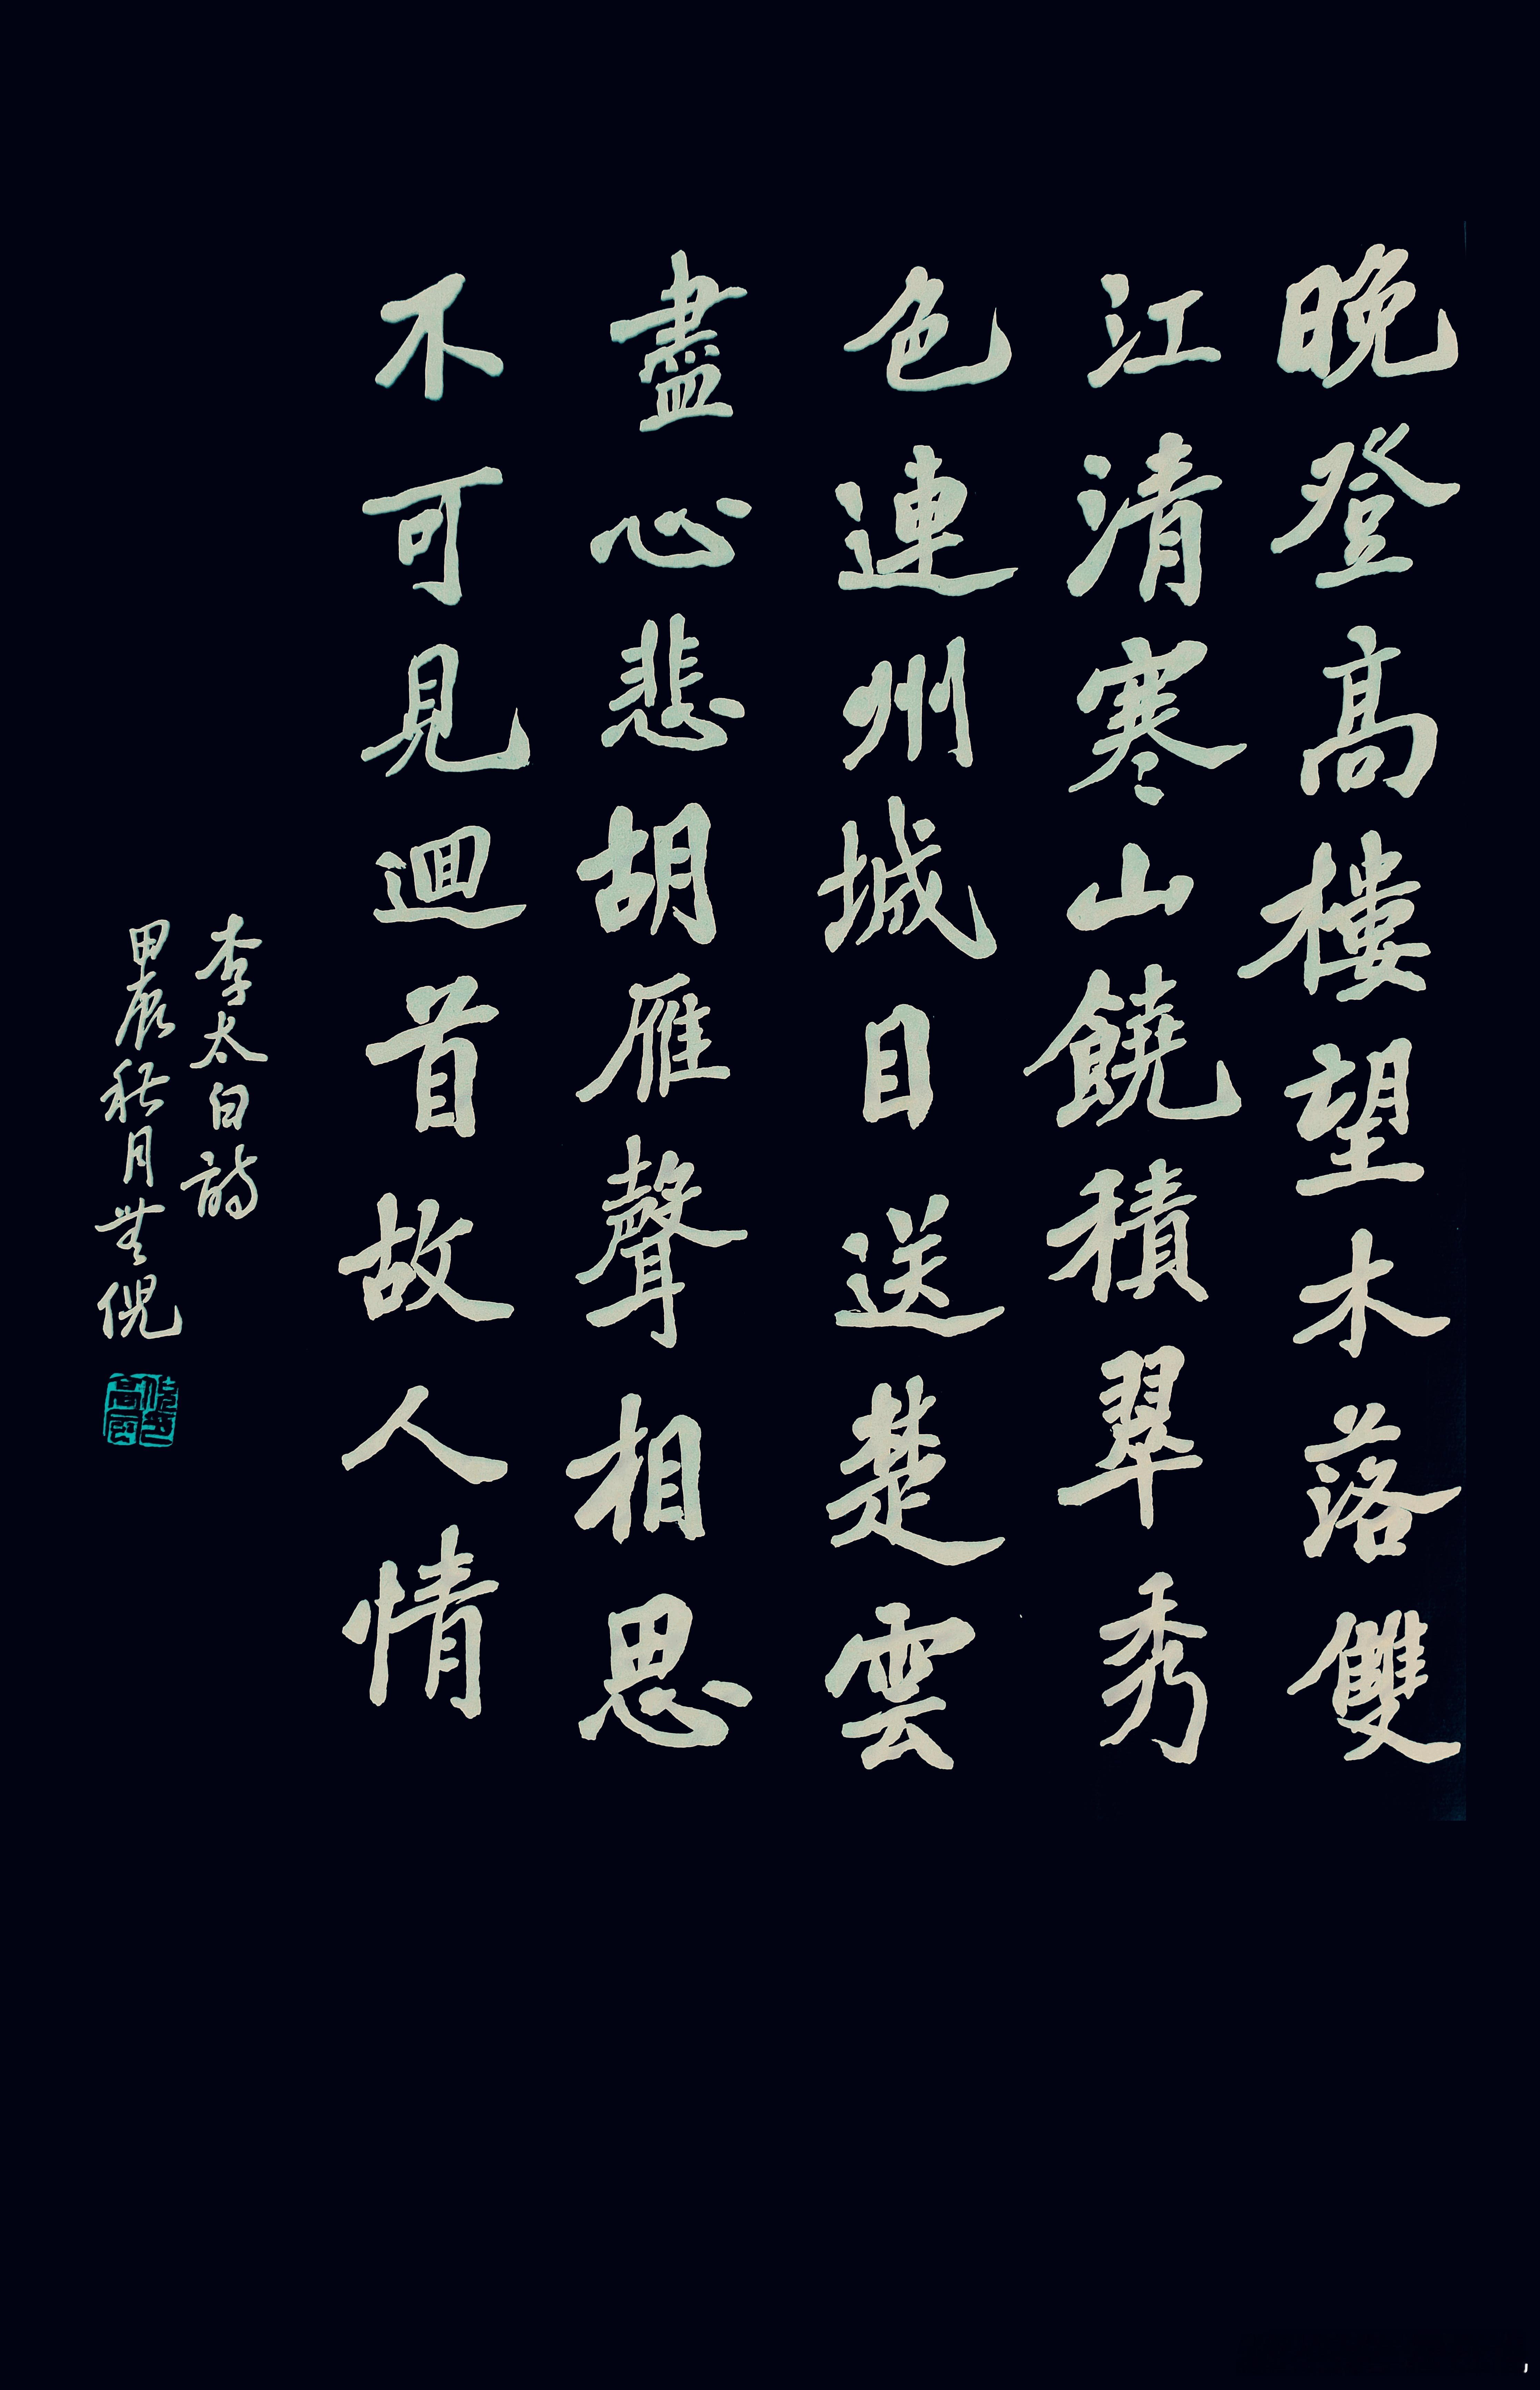 晚登高樓望木落雙
江清寒山饒積翠秀
色連州城目送楚雲
盡心悲胡雁聲相思
不可見迴首故人情
李太白詩
甲辰秋月芸倪